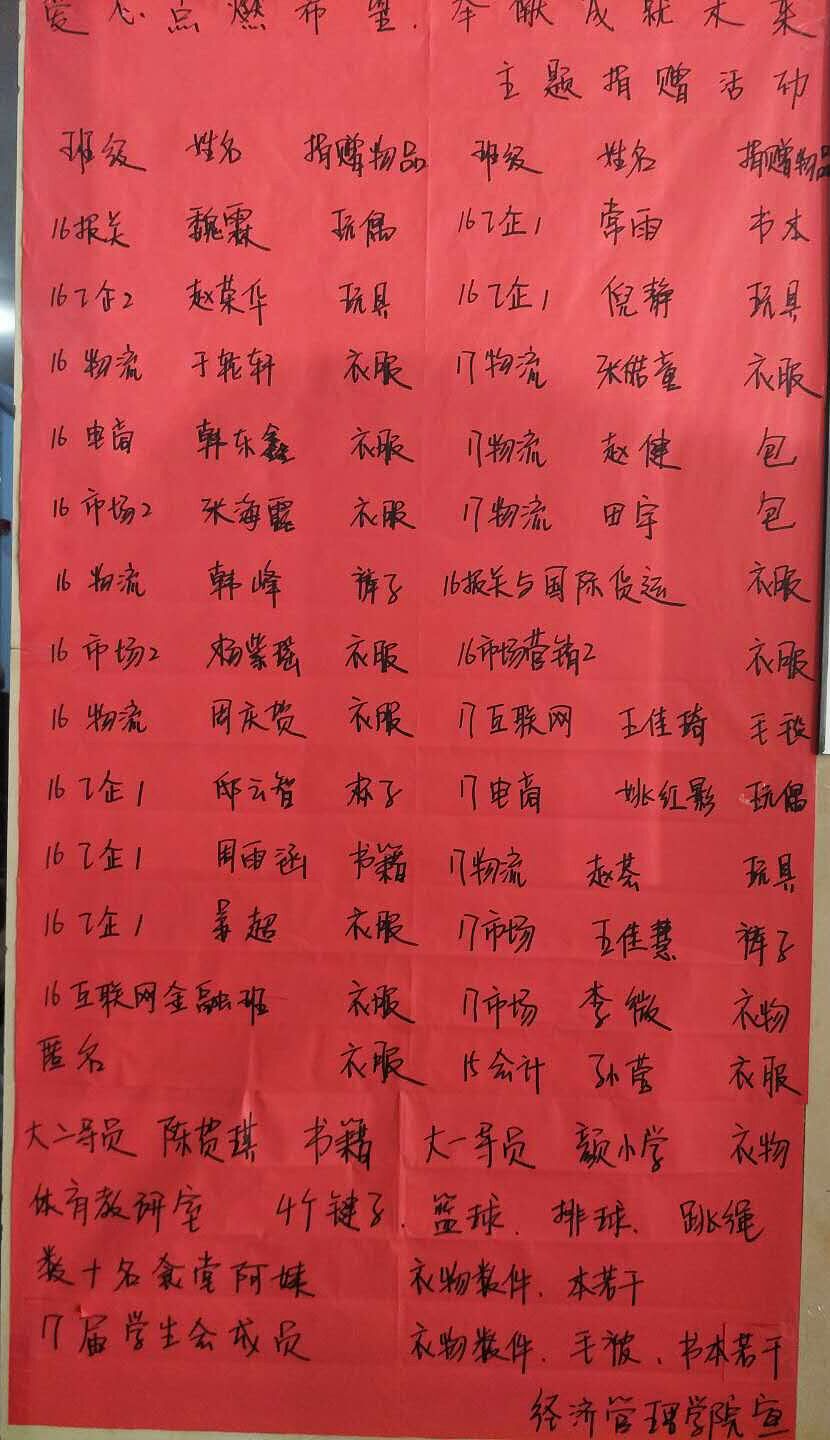 爱心点燃希望.奉献成就未来
主题捐赠活动
班级 姓名 捐赠物品 班级 姓名 捐赠物品
16报关 魏霖 玩偶 16乙企1 常雨 书本
16乙企2 赵荣华 玩具 16乙企1 倪静 玩具
16物流 于乾轩 衣服 17物流 张皓童 衣服
16电商 韩东鑫 衣服 17物流 赵健 包
16市场2 张海霞 衣服 17物流 田宇 包
16物流 韩峰 裤子 16报关与国际货运 衣服
16市场2 杨紫瑶 衣服 16市场营销2 衣服
16物流 周庆贺 衣服 17互联网 王佳琦 毛毯
16乙企1 邸云智 杯子 17电商 姚红影 玩偶
16乙企1 周雨涵 书籍 17物流 赵荟 玩具
16乙企1 姜超 衣服 17市场 王佳慧 裤子
16互联网金融班 衣服 17市场 李微 衣物
匿名 衣服 15会计 孙莹 衣服
大二导员 陈贺琪 书籍 大一导员 颜小学 衣物
体育教研室 4个毽子.篮球.排球.跳绳
数十名食堂阿姨 衣物数件.本若干
17届学生会成员 衣物数件.毛被、书本若干
经济管理学院宣